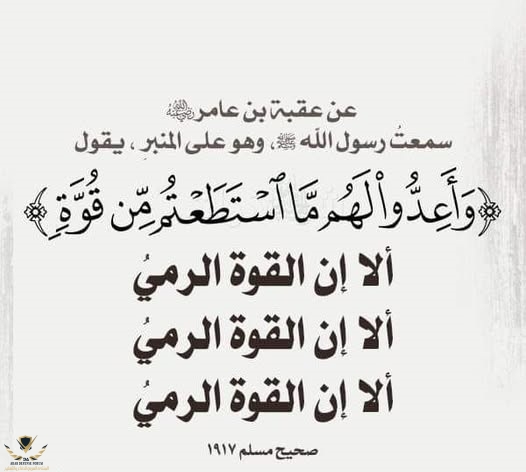 عن عقبة بن عامر رضي الله عنه
سمعتُ رسول الله ﷺ، وهو على المنبرِ، يقول
﴿وَأَعِدُّوا۟ لَهُم مَّا ٱسْتَطَعْتُم مِّن قُوَّةٍ﴾
ألا إن القوة الرميُ
ألا إن القوة الرميُ
ألا إن القوة الرميُ
صحيح مسلم ١٩١٧
ARAB DEFENSE FORUM